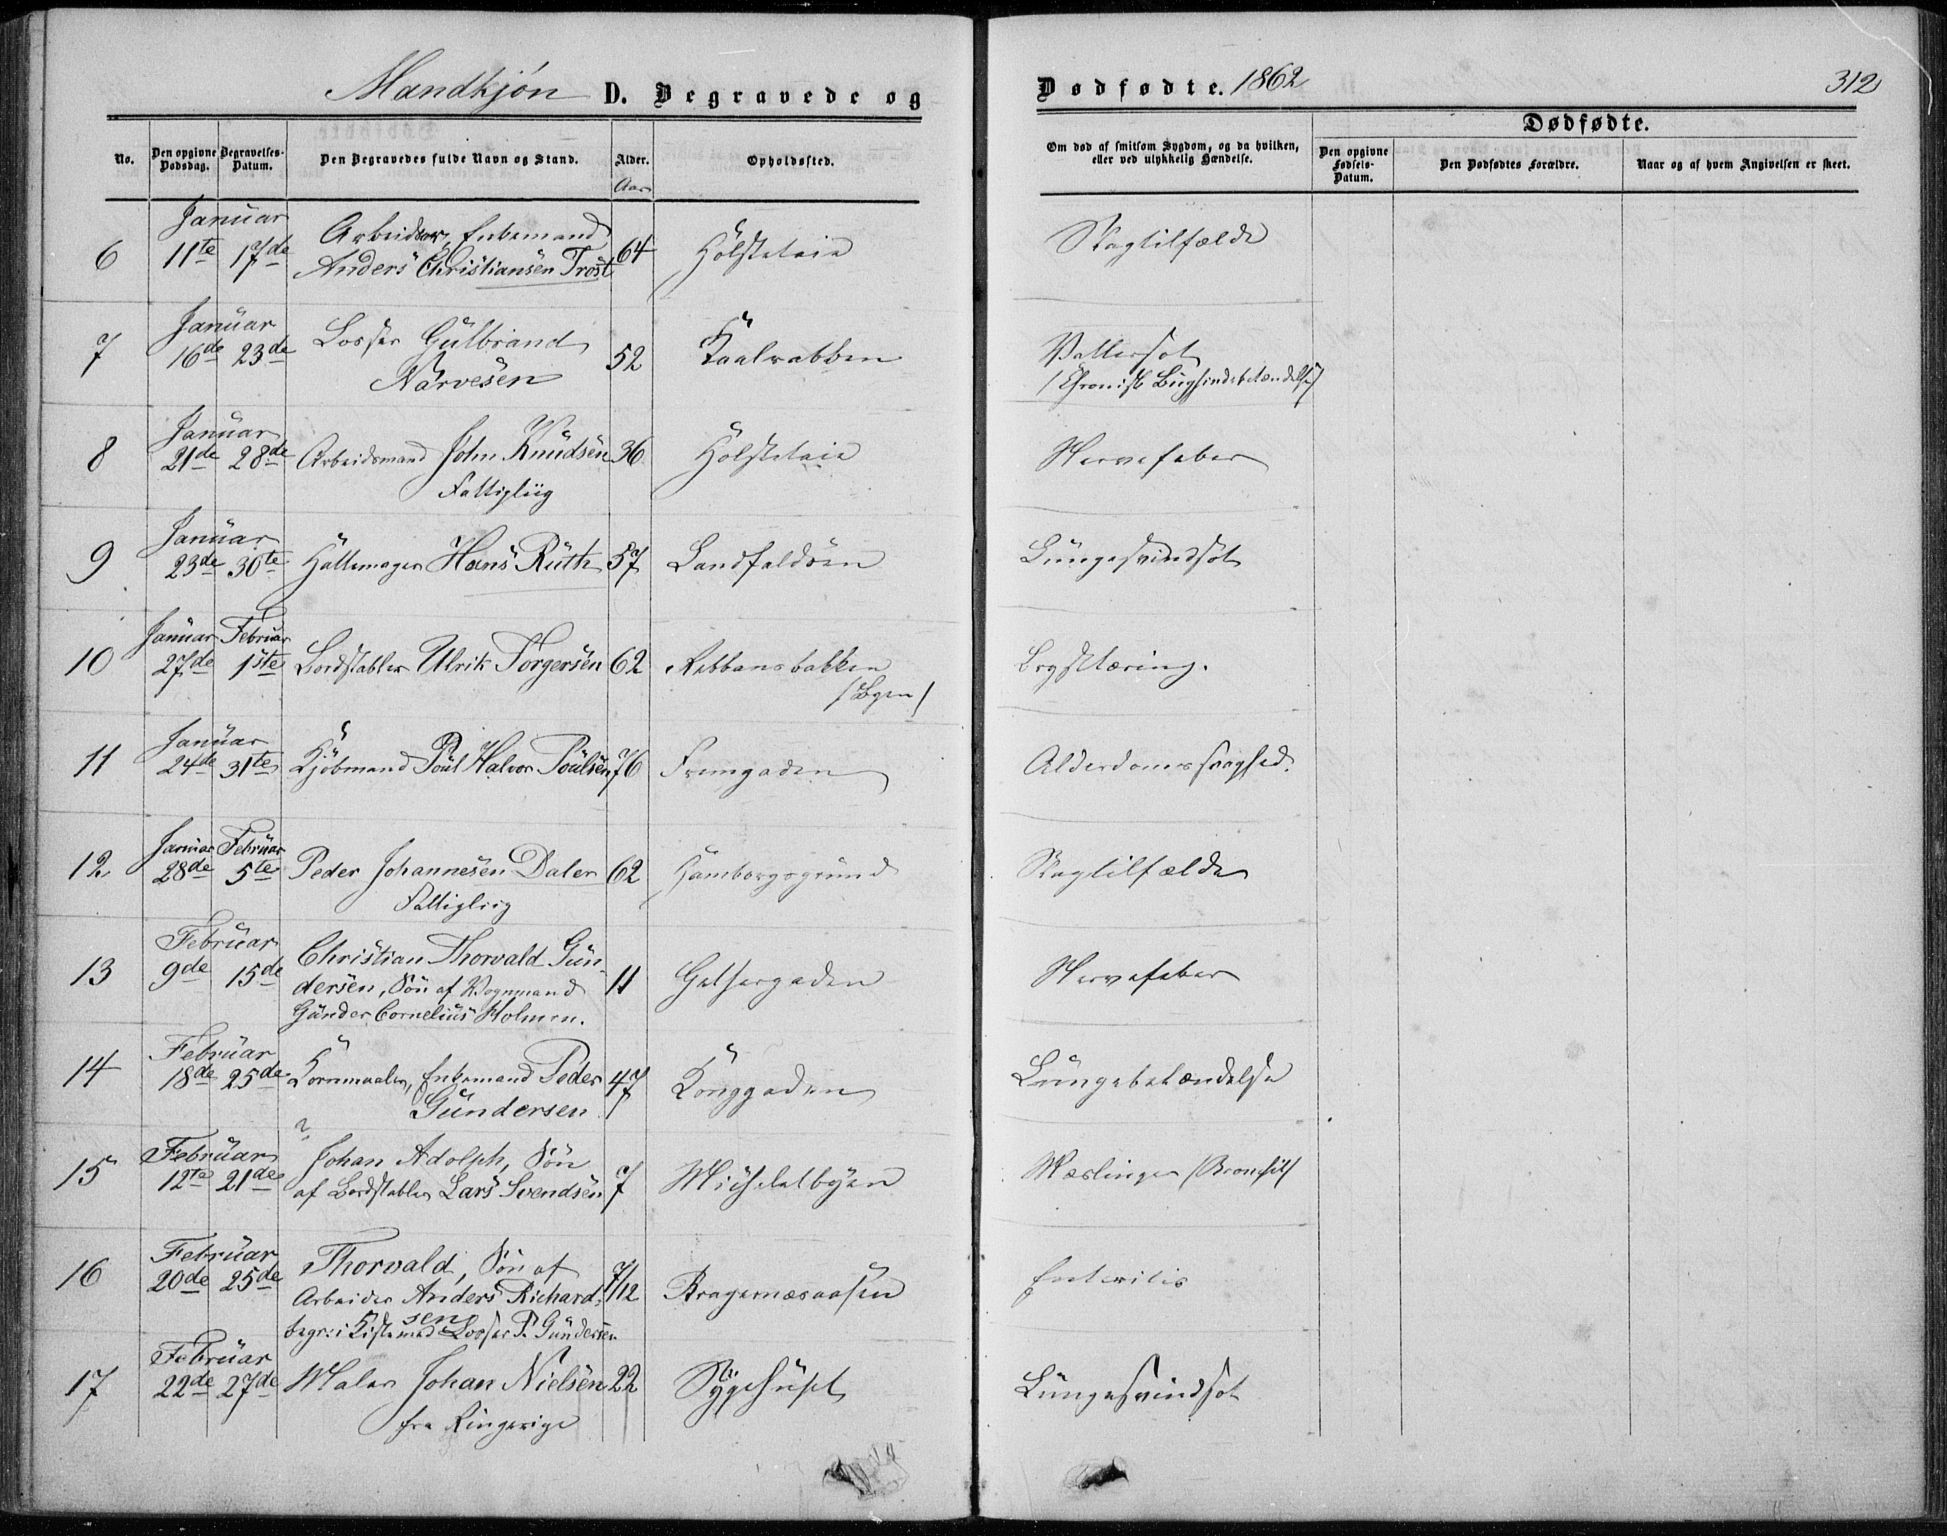 Mandkjön D. Begravede og
Dødfødte. 1862
312
No.
Den opgivne Dødsdag.
Begravelses-Datum.
Den Begravedes fulde Navn og Stand.
Alder.
Aar
Opholdssted.
Om død af smitsom Sygdom, og da hvilken,
eller ved ulykkelig Hændelse.
Dødfødte.
Den opgivne Fødsels-Datum.
Den Dødfødtes Forældre.
Naar og af hvem Angivelsen er skeet.
Januar
Arbeider, Enkemand
6 11te 17de Anders Christiansen Trost 64 Holsteteie Slagtilfælde
Januar
7 16de 23de Losser Gulbrand 52 Kaalrabben Vattersot
Narvesen (Chronisk Bughindebetændelse)
Januar
8 21de 28de Arbeidsmand John Knudsen 36 Holsteteie Nervefeber
Fattiglig
Januar
9 23de 30te Hattemager Hans Ruth 57 Landfaldøen Lungesvindsot
Januar Februar
10 27de 1ste Bordstabler Ulrik Torgersen 62 Rebbansbakken Brysttæring.
(Byen)
Januar
11 24de 31te Kjöbmand Poul Halvor Poulsen 76 Fremgaden Alderdomssvaghed.
Januar Februar
12 28de 5te Peder Johannesen Daler 62 Hamborgsgrund Slagtilfælde
Fattiglig
Februar
Christian Thorvald Gun-
13 9de 15de dersen, Sön af Vognmand 11 Gethergaden Nervefeber
Gunder Cornelius Holmen.
Februar
14 18de 25de Kornmaaler, Enkemand Peder 47 Konggaden Lungebetændelse
Gundersen
?
Februar
Johan Adolph, Sön
15 12te 21de af Bordstabler Lars Svendsen 7 Micheletbyen Mæslinger (Bronchit)
Februar
Thorvald, Sön af
16 20de 25de Arbeider Anders Richard- 7/12 Bragernæsaasen Enteritis
sen
begr: i Kiste med Losser P. Gundersen
Februar
17 22de 27de Maler Johan Nielsen 22 Sygehuset Lungesvindsot
fra Ringerige